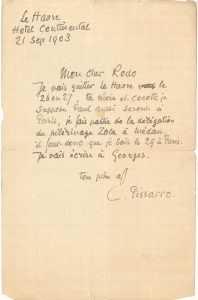 Le Havre
Hotel Continental
21 Sep 1903
Mon cher Rodo
Je vais quitter le Havre vers le
26 ou 27, ta mère et cocotte je
suppose Paul aussi seront à
Paris, je fais partie de la délégation
du pélerinage Zola à Médan
il faut donc que je sois le 29 à Paris.
Je vais écrire à Georges.
ton père aff
C. Pissarro